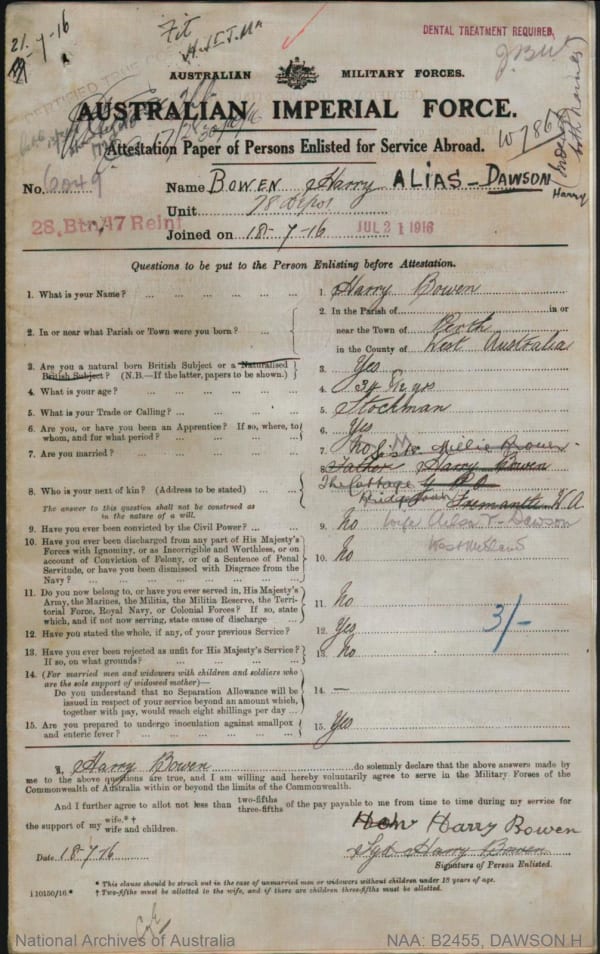 21-7-16
Fit
DENTAL TREATMENT REQUIRED
AUSTRALIAN MILITARY FORCES.
AUSTRALIAN IMPERIAL FORCE.
Attestation Paper of Persons Enlisted for Service Abroad.
No. 6049
Name BOWEN Harry ALIAS - DAWSON
Harry
Unit 78 Depot
28. Btn, 17 Reinf
Joined on 18-7-16 JUL 21 1916
Questions to be put to the Person Enlisting before Attestation.
1. What is your Name? ... 1. Harry Bowen
2. In or near what Parish or Town were you born? ... 2. In the Parish of in or
near the Town of Perth
in the County of West Australia
3. Are you a natural born British Subject or a Naturalised
British Subject? (N.B.—If the latter, papers to be shown.) 3. Yes
4. What is your age? ... 4.
5. What is your Trade or Calling? ... 5. Stockman
6. Are you, or have you been an Apprentice? If so, where, to
whom, and for what period? ... 6. Yes
7. Are you married? ... 7. No
8. Who is your next of kin? (Address to be stated) ... 8. Father Harry Bowen
The Cottage
Fremantle W A
The answer to this question shall not be construed as
in the nature of a will.
9. Have you ever been convicted by the Civil Power? ... 9. No
Dawson
West Midland
10. Have you ever been discharged from any part of His Majesty's
Forces with Ignominy, or as Incorrigible and Worthless, or on
account of Conviction of Felony, or of a Sentence of Penal
Servitude, or have you been dismissed with Disgrace from the
Navy? ... 10. No
11. Do you now belong to, or have you ever served in, His Majesty's
Army, the Marines, the Militia, the Militia Reserve, the Terri-
torial Force, Royal Navy, or Colonial Forces? If so, state
which, and if not now serving, state cause of discharge 11. No
12. Have you stated the whole, if any, of your previous Service? 12. Yes 3/-
13. Have you ever been rejected as unfit for His Majesty's Service?
If so, on what grounds? ... 13. No
14. (For married men and widowers with children and soldiers who
are the sole support of widowed mother)—
Do you understand that no Separation Allowance will be
issued in respect of your service beyond an amount which,
together with pay, would reach eight shillings per day ... 14. —
15. Are you prepared to undergo inoculation against smallpox
and enteric fever? ... 15. Yes
I, Harry Bowen do solemnly declare that the above answers made by
me to the above questions are true, and I am willing and hereby voluntarily agree to serve in the Military Forces of the
Commonwealth of Australia within or beyond the limits of the Commonwealth.
And I further agree to allot not less than two-fifths
three-fifths of the pay payable to me from time to time during my service for
the support of my wife.*†
wife and children.
Harry Bowen
Sgd Harry Bowen
Date 18-7-16
Signature of Person Enlisted.
* This clause should be struck out in the case of unmarried men or widowers without children under 18 years of age.
† Two-fifths must be allotted to the wife, and if there are children three-fifths must be allotted.
National Archives of Australia
NAA: B2455, DAWSON H